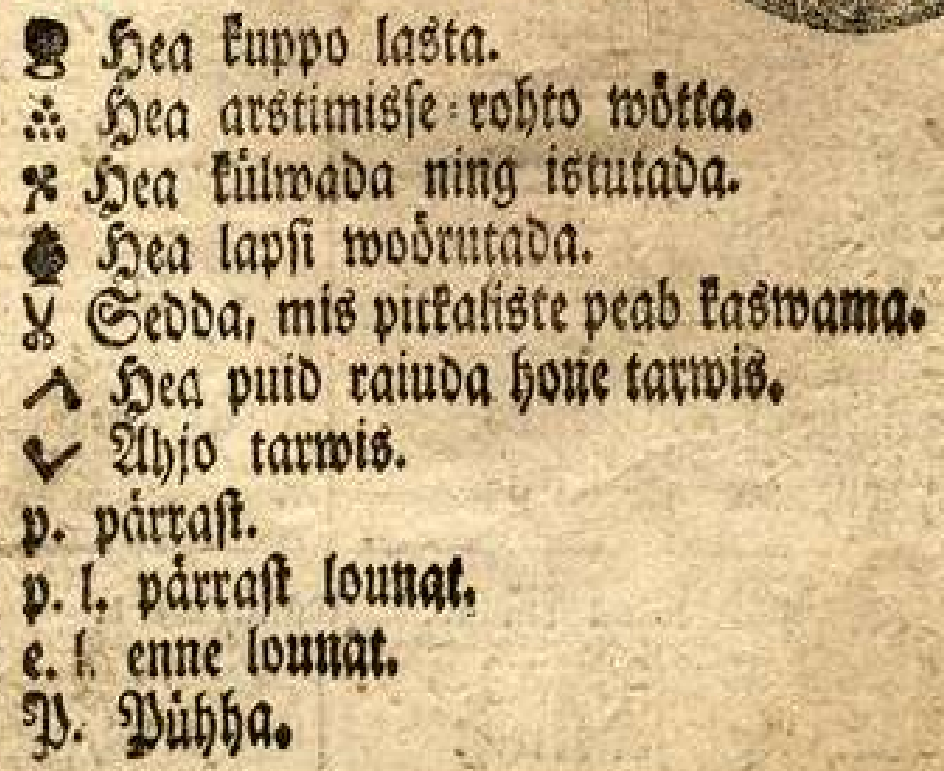 Hea kuppo lasta.
Hea arstimisse-rohto wötta.
Hea külwada ning istutada.
Hea lapsi woörutada.
Sedda, mis pitkaliste peab kaswama.
Hea puid raiuda hone tarwis.
Ahjo tarwis.
p. pärrast.
p. l. pärrast lounat.
e. l. enne lounat.
P. Pühha.